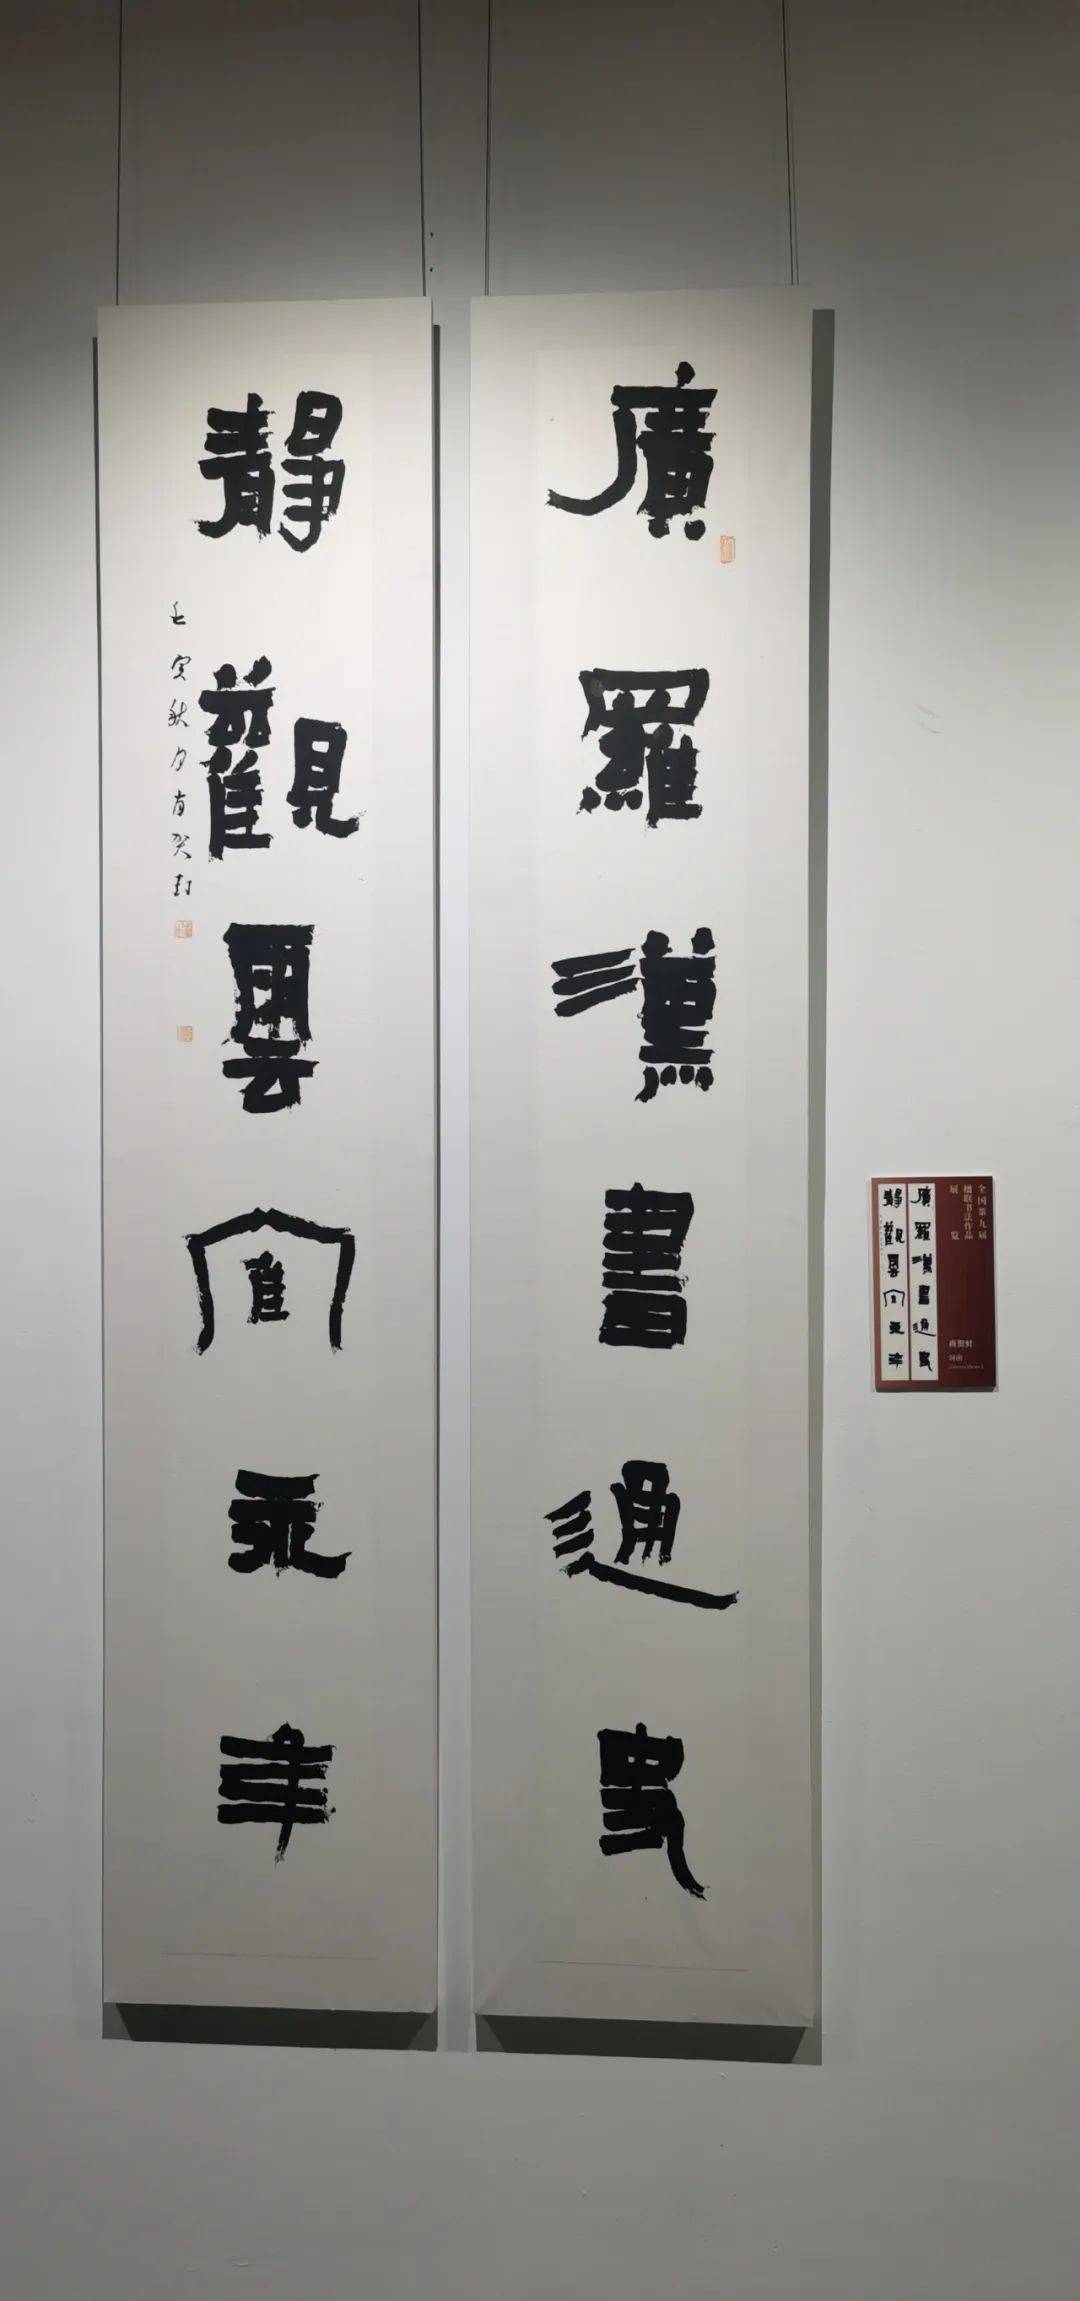 廣羅漢書通史
靜觀雲寉年
壬寅秋月肖贺封
全国第九届
楹联书法作品
展览
肖贺封
河南